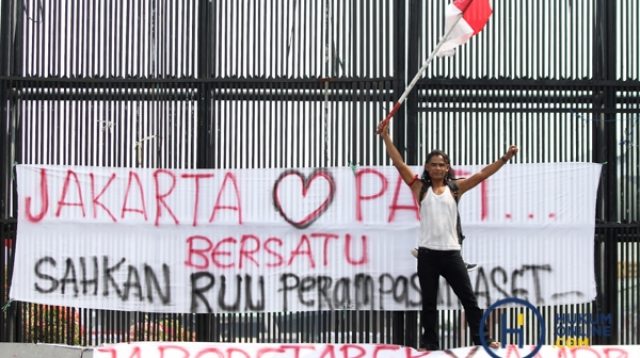 JAKARTA ♡ PATI...
BERSATU
SAHKAN RUU PERAMPASAN ASET...
HUKUM
ONLINE
.COM